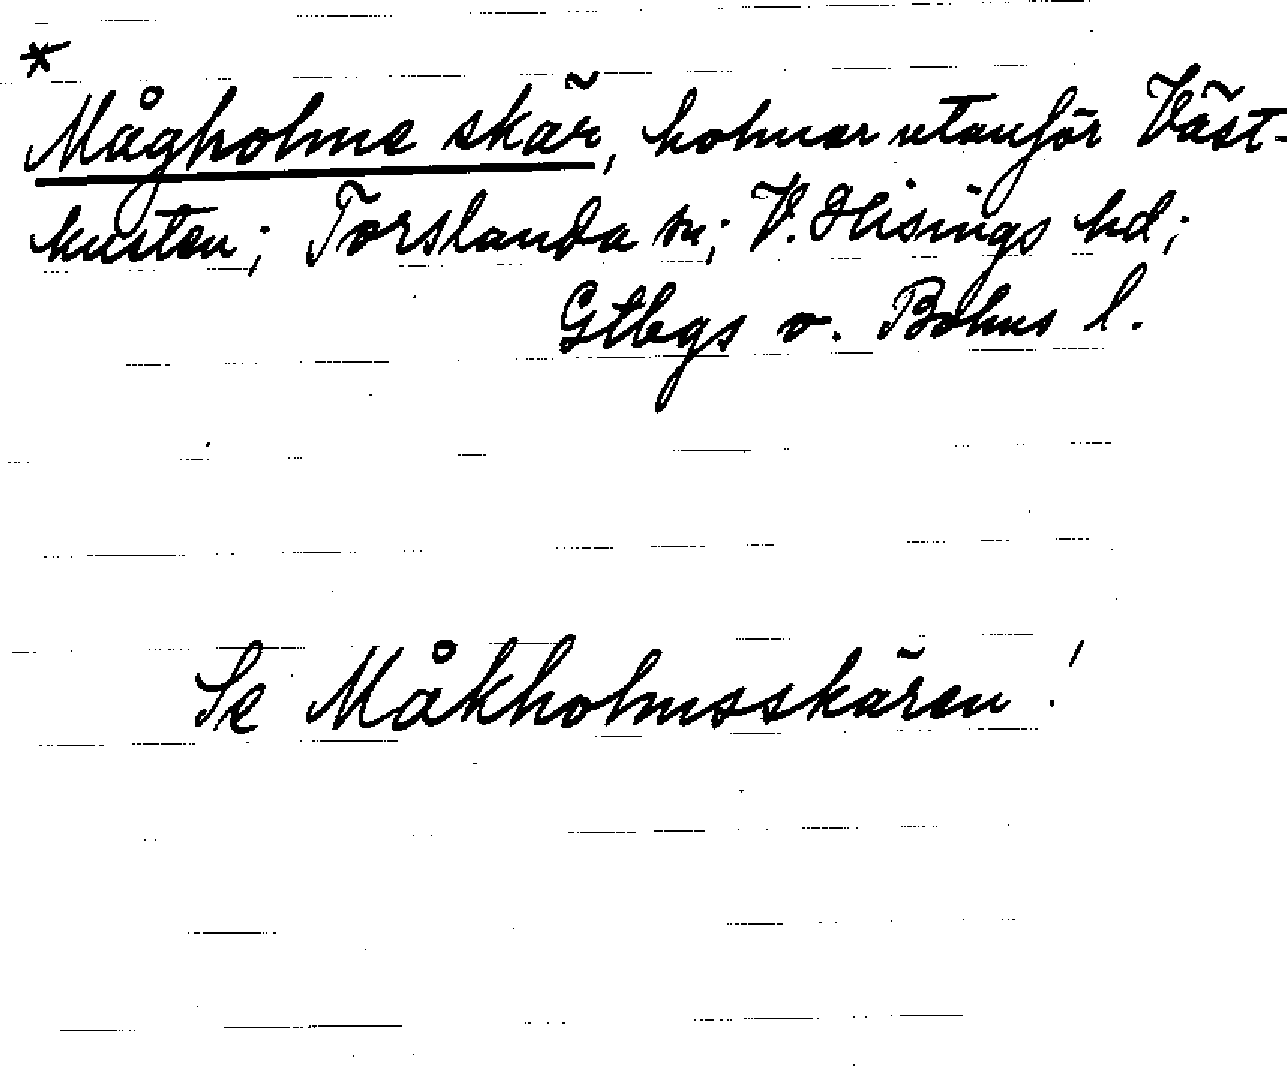 *
Mågholme skär, holmar utanför Väst-
kusten; Torslanda sn; V. Hisings hd;
Gtbgs o. Bohus l.
Se Måkholmsskären!